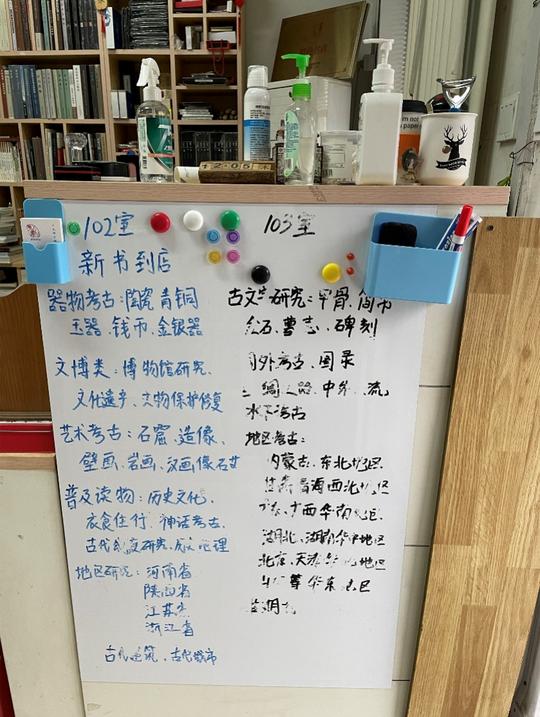 102室
新书到店
器物考古：陶瓷 青铜
玉器、钱币、金银器
文博类：博物馆研究、
文化遗产、文物保护修复
艺术考古：石窟、造像、
壁画、岩画、汉画像石
普及读物：历史文化、
衣食住行、神话考古、
古代制度研究、
地区研究：河南省
陕西省
江苏省
浙江省
古代建筑、古代城市
103室
古文字研究：甲骨、简帛
金石、墓志、碑刻
考古、图录
之路、中外 流
水下考古
地区考古：
内蒙古、东北地区
青海西北地区
广西华南
湖北、湖南华中地区
北京、天津 地区
等华东 区